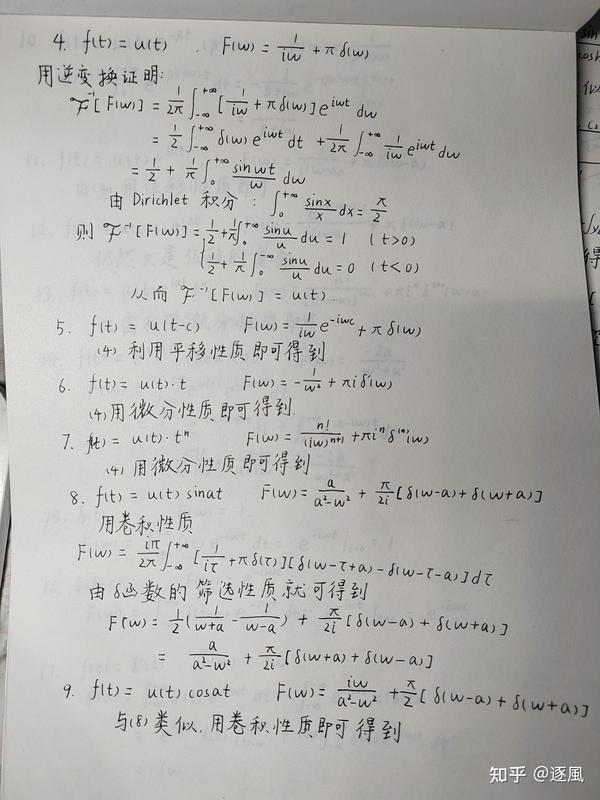 4. f(t) = u(t) F(w) = 1/(iw) + πδ(w)
用逆变换证明:
ℱ⁻¹[F(w)] = 1/(2π) ∫_{-∞}^{+∞} [1/(iw) + πδ(w)] e^{iwt} dw
= 1/2 ∫_{-∞}^{+∞} δ(w) e^{iwt} dt + 1/(2π) ∫_{-∞}^{+∞} 1/(iw) e^{iwt} dw
= 1/2 + 1/π ∫_0^{+∞} sinwt/w dw
由 Dirichlet 积分: ∫_0^{+∞} sinx/x dx = π/2
则 ℱ⁻¹[F(w)] = { 1/2 + 1/π ∫_0^{+∞} sinu/u du = 1 (t>0)
1/2 + 1/π ∫_0^{-∞} sinu/u du = 0 (t<0)
从而 ℱ⁻¹[F(w)] = u(t).
5. f(t) = u(t-c) F(w) = 1/(iw) e^{-iwc} + πδ(w)
(4) 利用平移性质即可得到
6. f(t) = u(t)·t F(w) = -1/w² + πiδ'(w)
(4) 用微分性质即可得到.
7. f(t) = u(t)·tⁿ F(w) = n!/(iw)^{n+1} + πiⁿδ^{(n)}(w)
(4) 用微分性质即可得到
8. f(t) = u(t) sinat F(w) = a/(a²-w²) + π/(2i) [δ(w-a) + δ(w+a)]
用卷积性质
F(w) = iπ/(2π) ∫_{-∞}^{+∞} [1/(iτ) + πδ(τ)][δ(w-τ+a) - δ(w-τ-a)] dτ
由 δ函数的筛选性质就可得到
F(w) = 1/2 (1/(w+a) - 1/(w-a)) + π/(2i) [δ(w-a) + δ(w+a)]
= a/(a²-w²) + π/(2i) [δ(w+a) + δ(w-a)]
9. f(t) = u(t) cosat F(w) = iw/(a²-w²) + π/2 [δ(w-a) + δ(w+a)]
与(8)类似,用卷积性质即可得到
知乎 @逐風